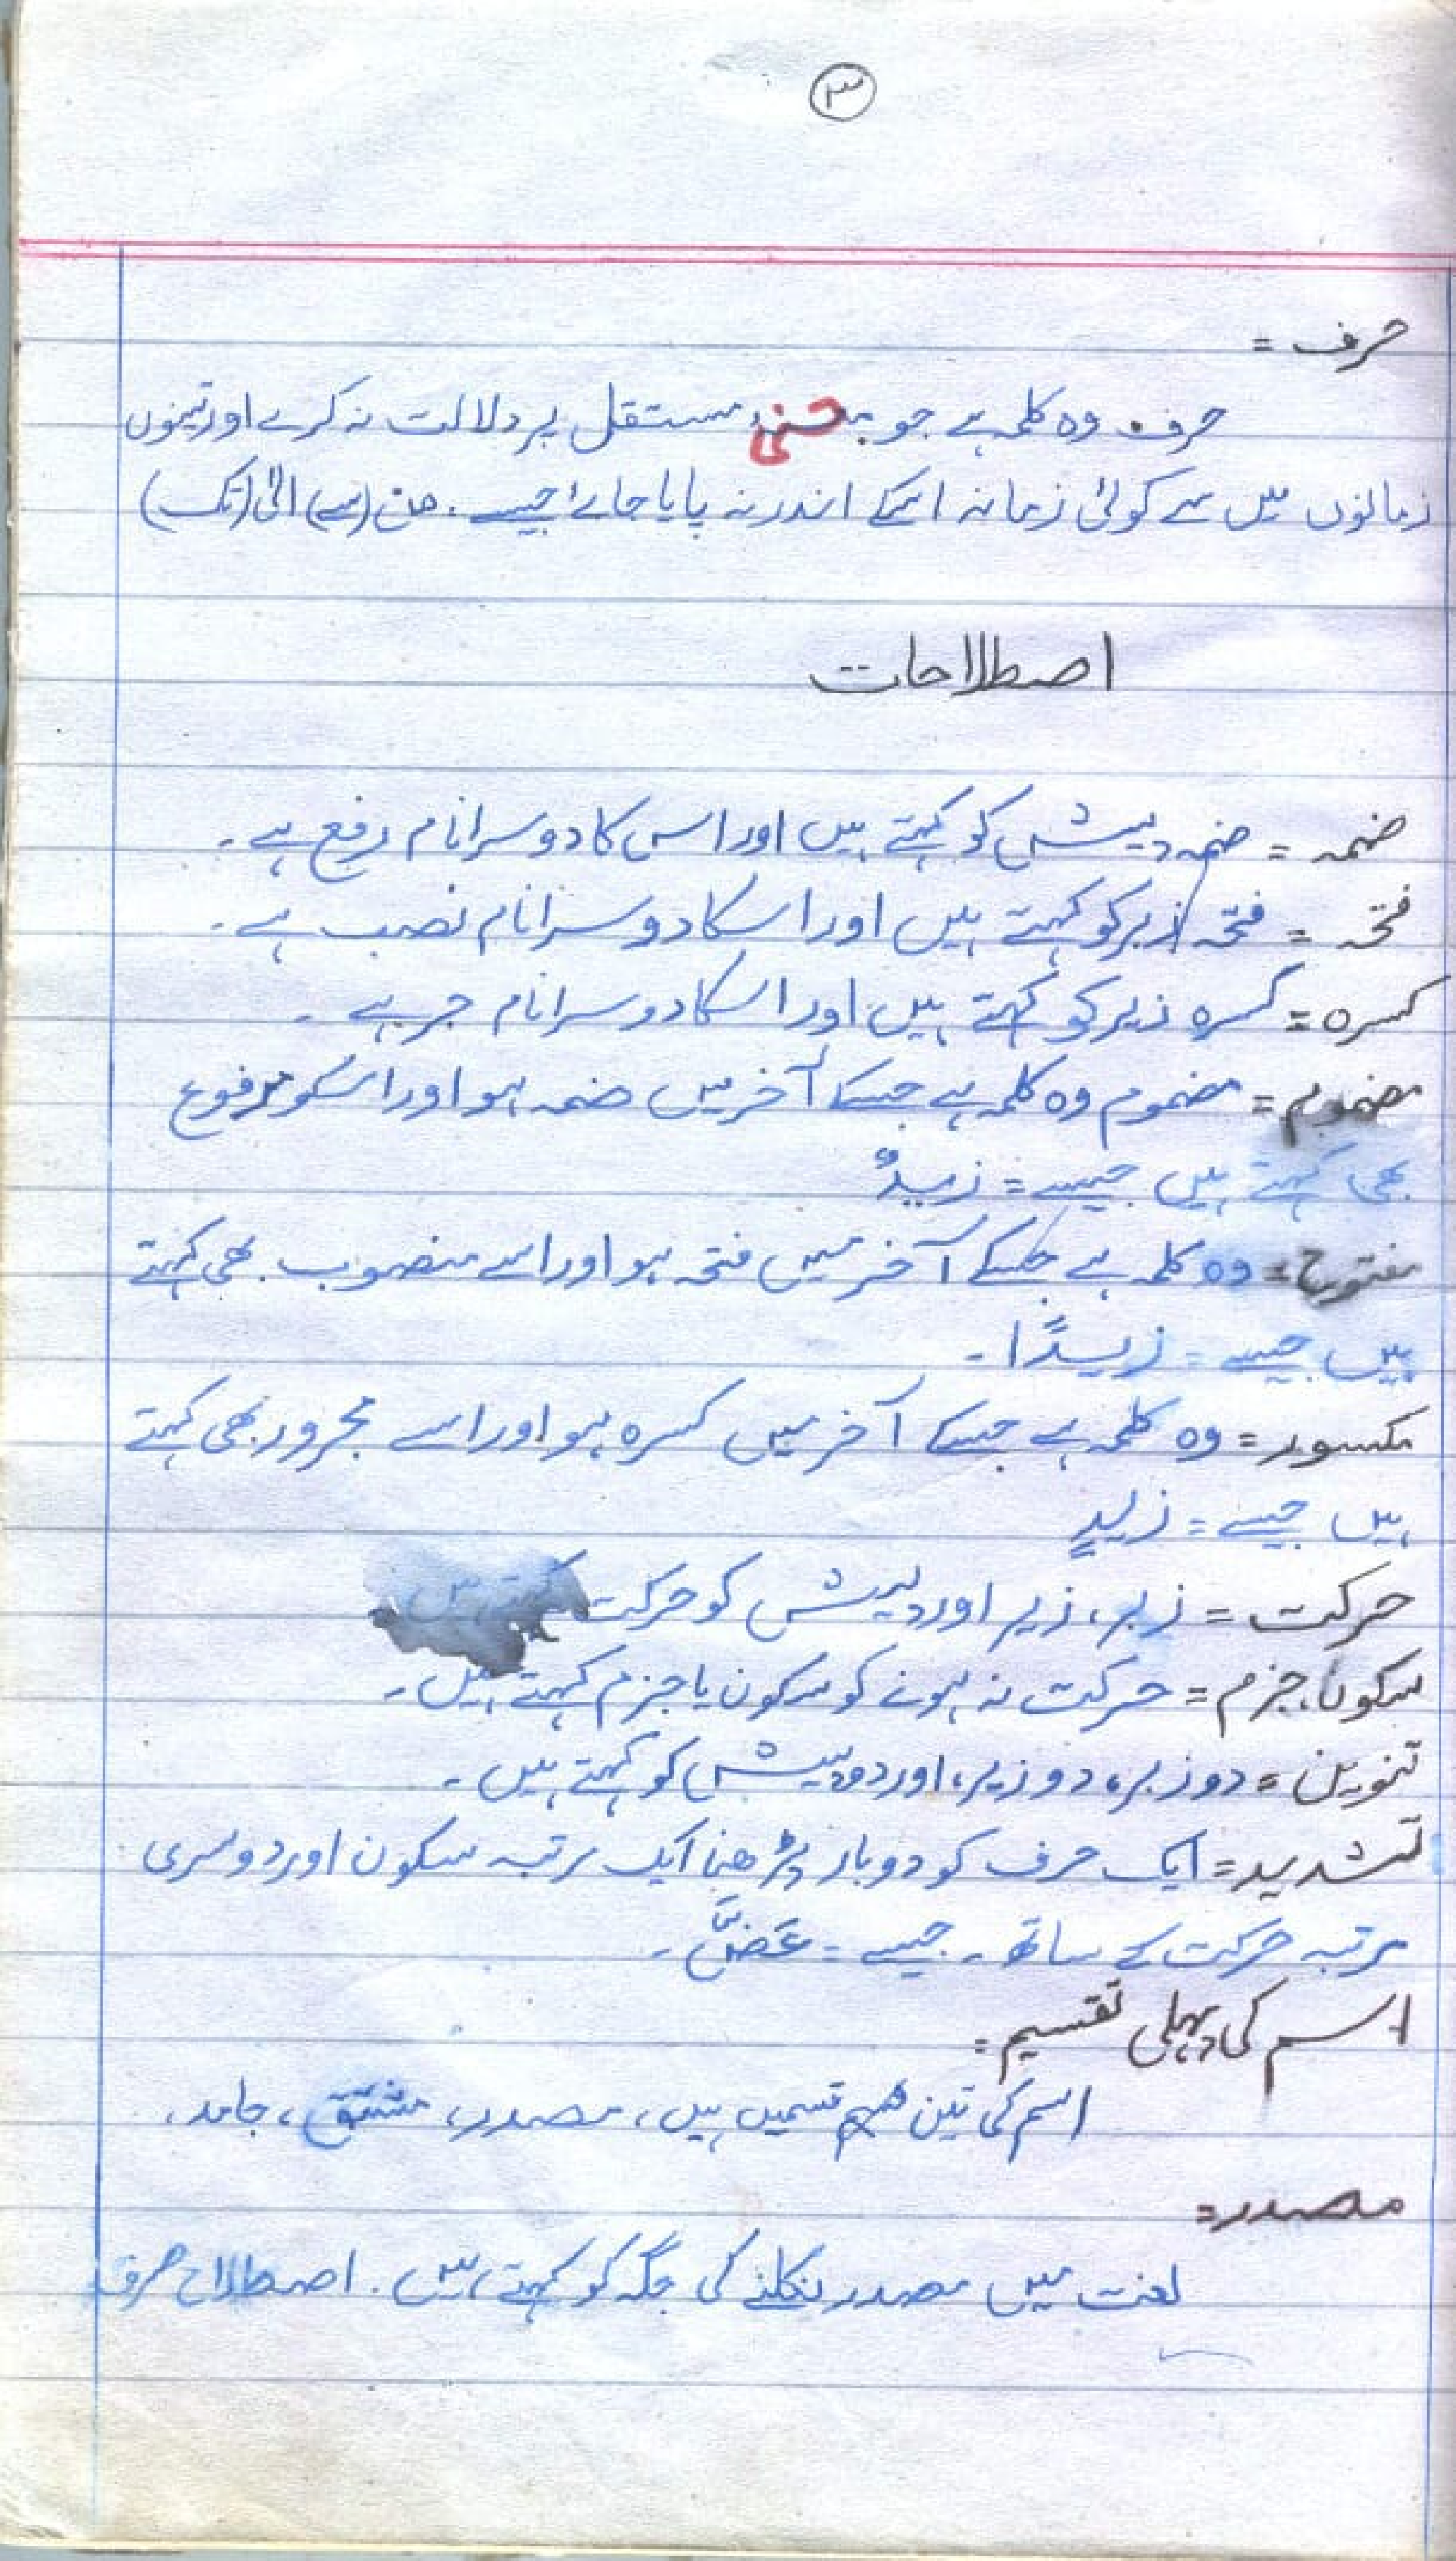 ۳
حرف =
حرف وہ کلمہ ہے جو مستقل پر دلالت نہ کرے اور تینوں
زمانوں میں سے کوئی زمانہ اسکے اندر نہ پایا جائے جیسے۔ من (سے) الیٰ (تک)
اصطلاحات
ضمہ = ضمہ پیش کو کہتے ہیں اور اس کا دوسرا نام رفع ہے۔
فتحہ = فتحہ زبر کو کہتے ہیں اور اسکا دوسرا نام نصب ہے۔
کسرہ = کسرہ زیر کو کہتے ہیں اور اسکا دوسرا نام جر ہے۔
مضموم = مضموم وہ کلمہ ہے جسکے آخر میں ضمہ ہو اور اسکو مرفوع
بھی کہتے ہیں جیسے = زیدٌ
مفتوح = وہ کلمہ ہے جسکے آخر میں فتحہ ہو اور اسے منصوب بھی کہتے
ہیں جیسے = زیدًا۔
مکسور = وہ کلمہ ہے جسکے آخر میں کسرہ ہو اور اسے مجرور بھی کہتے
ہیں جیسے = زیدٍ
حرکت = زبر، زیر اور پیش کو حرکت کہتے ہیں
سکون، جزم = حرکت نہ ہونے کو سکون یا جزم کہتے ہیں۔
تنوین = دو زبر، دو زیر، اور دو پیش کو کہتے ہیں۔
تشدید = ایک حرف کو دو بار پڑھنا ایک مرتبہ سکون اور دوسری
مرتبہ حرکت کے ساتھ۔ جیسے = عَضَّ۔
اسم کی پہلی تقسیم =
اسم کی تین قسمیں ہیں، مصدر، مشتق، جامد،
مصدر =
لغت میں مصدر نکلنے کی جگہ کو کہتے ہیں۔ اصطلاح صرف